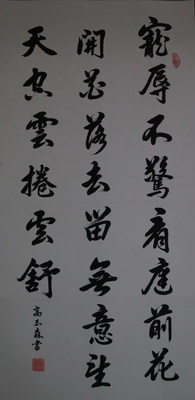 寵辱不驚看庭前花
開花落去留無意望
天空雲捲云舒
高玉森書